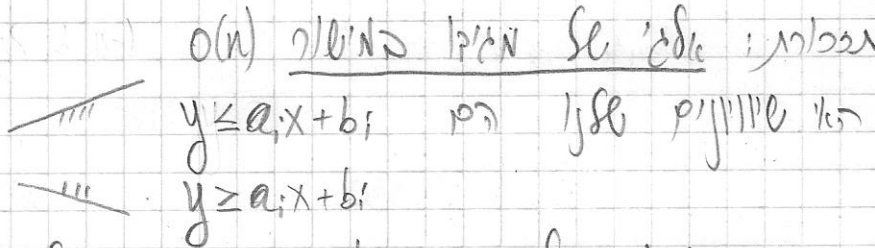 תזכורת: אלג' של מגידו במישור O(n)
האי שיוויונים שלנו הם y ≤ aᵢx + bᵢ
y ≥ aᵢx + bᵢ